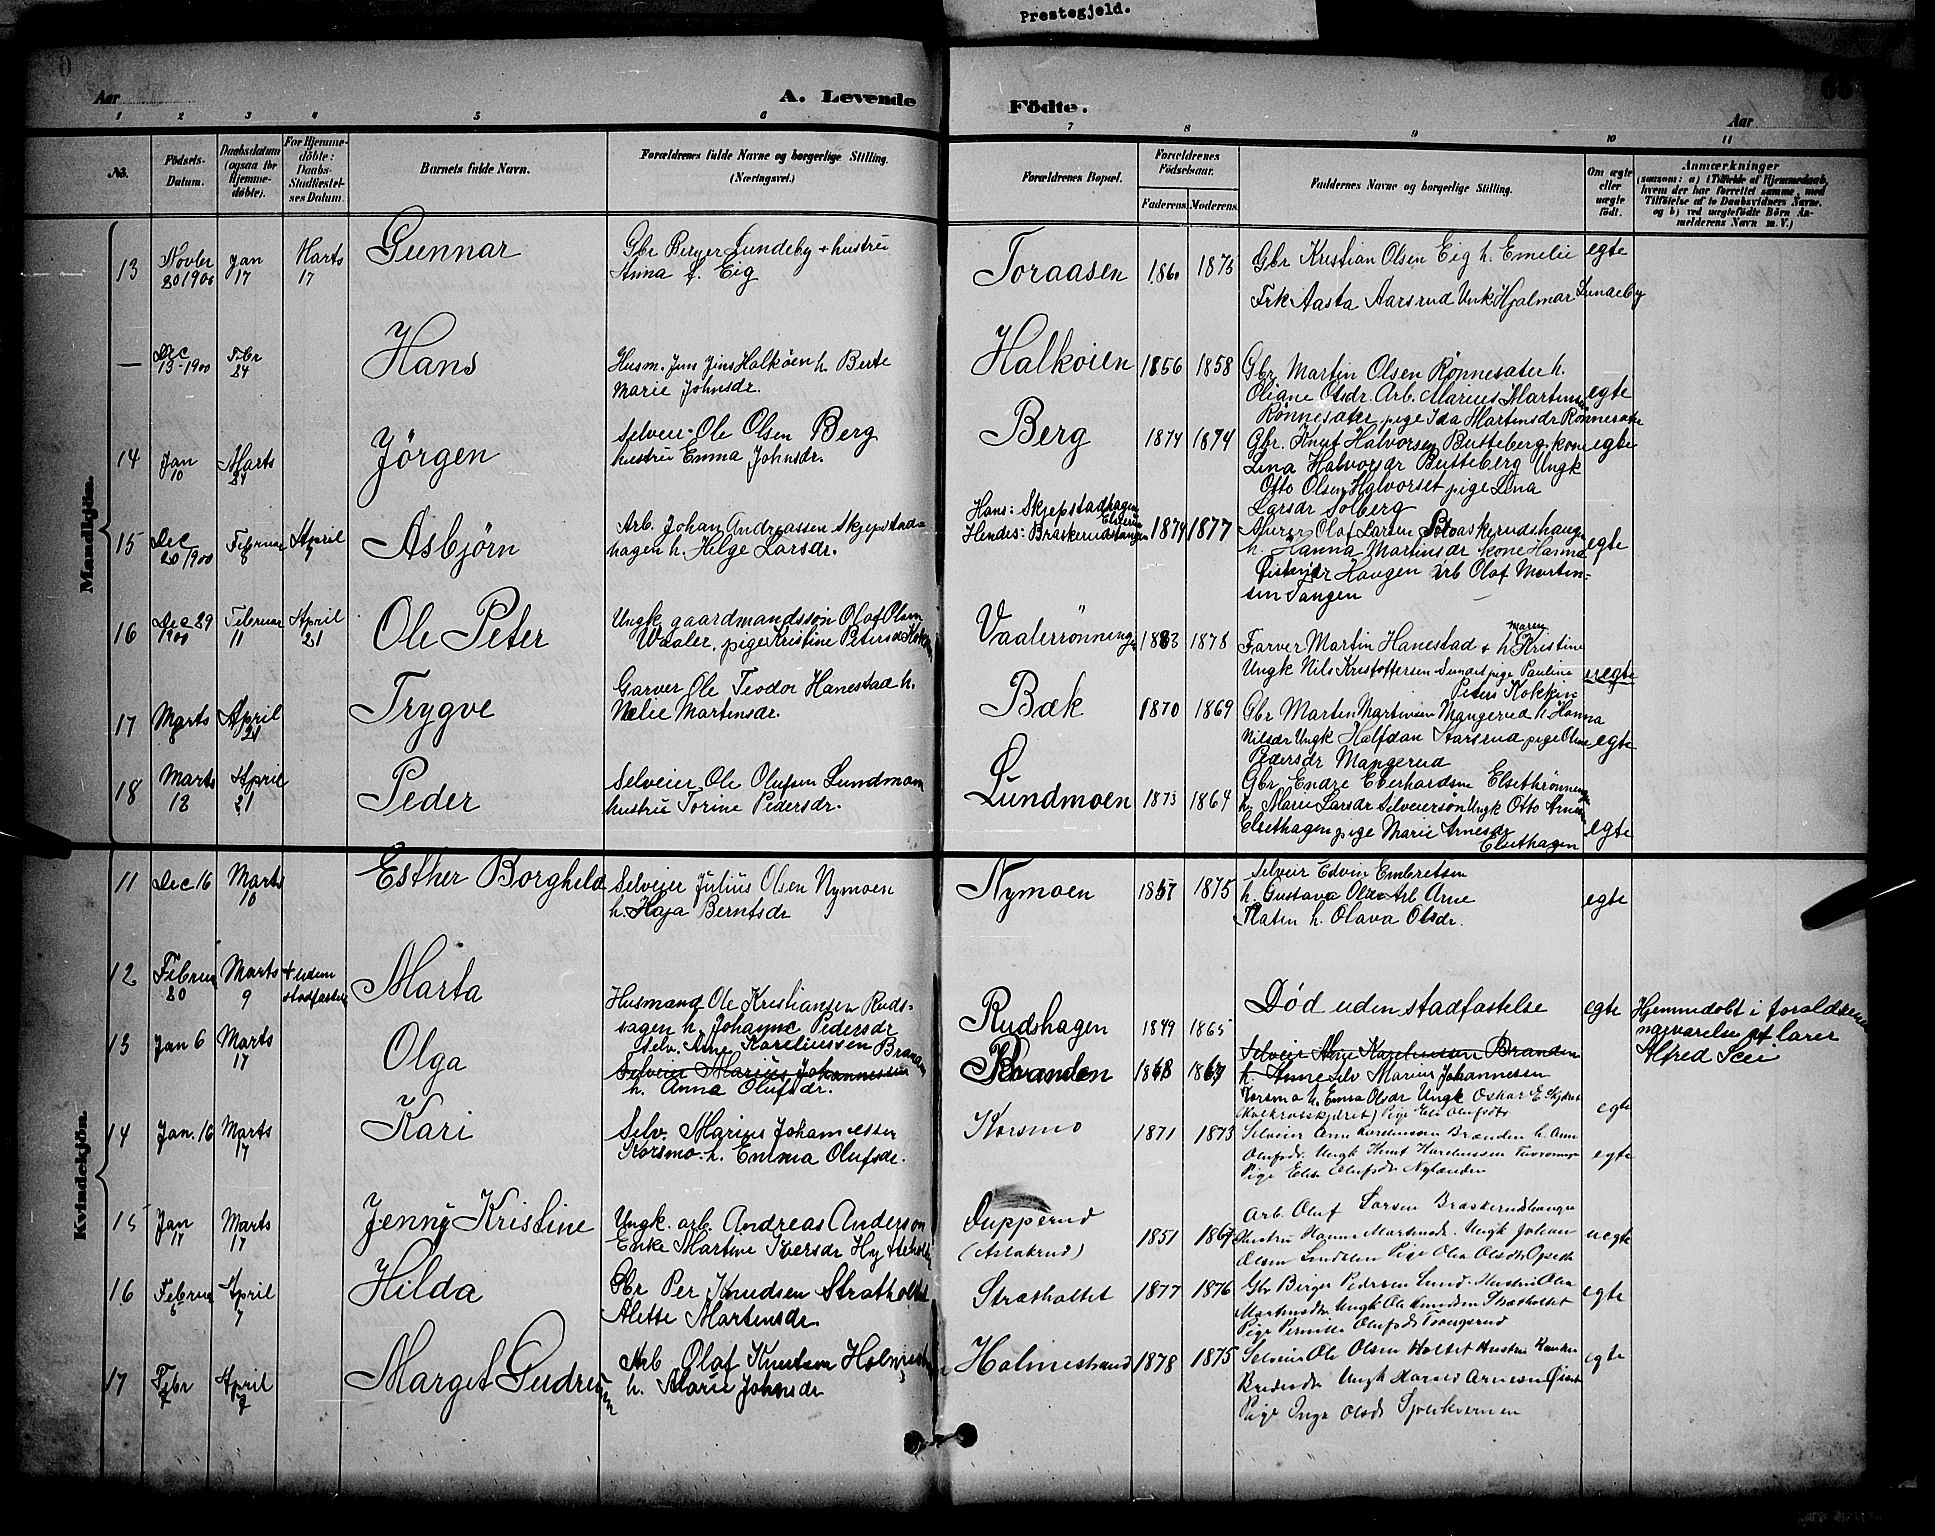 Prestegjeld.
Aar
A. Levende
Födte.
Aar
1 2 3 4 5 6 7 8 9 10 11
No.
Födsels-Datum.
Daabsdatum (ogsaa for Hjemme-döbte).
For Hjemme-döbte: Daabs-Stadfæstel-ses Datum.
Barnets fulde Navn.
Forældrenes fulde Navne og borgerlige Stilling.
(Næringsvei.)
Forældrenes Bopæl.
Forældrenes Födselsaar.
Faderens. Moderens.
Faddernes Navne og borgerlige Stilling.
Om ægte eller uægte födt.
Anmærkninger
(saasom: a) i Tilfælde af Hjemmedaab,
hvem der har forrettet samme, med
Tilföielse af to Daabsvidners Navne.
og b) ved uægtefödte Börn An-
melderens Navn m. V.)
Mandkjön.
13 Novbr 20 1900 Jan 17 Marts 17 Gunnar
Gbr Berger Lundeby + hustru
Anna f. Eig
Toraasen 1875
Gbr Kristian Olsen Eig h. Emelie
Frk Aasta Aarsrud Unk Hjalmar Lundeby
egte
— Dec 13-1900 Febr 24 Hans
Husm. Jens Jens Halköien h. Berte
Marie Johnsdr.
Halköien 1856 1858
Gbr Martin Olsen Rönnesater h.
Oliane Olsdr Arb. Marius Martins
Rönnesater pige Ida Martinsdr Rönnesater
egte
14 Jan 10 Marts 24 Jörgen
Selveier Ole Olsen Berg
hustru Emma Johnsdr.
Berg 1874 1874
Gbr. Knut Halvorsen Butteberg kone
Lina Halvorsdr Butteberg Ungk
Otto Olsen Halvorset pige Lina
Larsdr Solberg
egte
15 Dec 20 1900 Februar 8 April 7 Asbjörn
Arb. Johan Andreassen Skjepstad-
hagen h. Helge Larsdr.
Hans: Skjepstadhagen Elverum
Hendes: Braskerudstangen 1874 1877
Olaf Larsen Braskerudshaug
h. Hanna Martinsdr kone Hanna
Haugen Arb Olaf Martin-
sen Tangen
egte
16 Dec 29 1900 Februar 11 April 21 Ole Peter
Ungk gaardmandssön Olaf Olsen
Vaaler, pige Kristine Petersdr
Vaalerrönningen 1883 1878
Farver Martin Hanestad + h Maren Kristine
Ungk Nils Kristoffersen Sundet pige Pauline
Peters Kokkin
uegte
17 Marts April 21 Trygve
Garver Ole Teodor Hanestad h.
Nelie Martinsdr.
Bæk 1870 1869
Gbr Martin Martinsen Mangerud h Hanna
Nilsdr Ungk Halfdan Aarsrud pige Oline
Pedersdr Mangerud
egte
18 Marts 12 April 21 Peder
Selveier Ole Olufsen Lundmoen
hustru Torine Pedersdr.
Lundmoen 1873 1864
Gbr Endre Eberhardsen Elsethrönningen
h. Marie Larsdr Selveiersön Ungk Otto Arnesen
Elsethagen pige Marie Arnesdr
Elsethagen
egte
Kvindekjön.
11 Dec 16 Marts 10 Esther Borghild
Selveier Julius Olsen Nymoen
h. Haja Berntsdr
Nymoen 1857 1875
Selveier Edvin Embretsen
h. Gustava Olsdr Arb Arne
Platen h. Olava Olsdr.
egte
12 Februar 20 Marts 9 + uden stadfæstelse Marta
Husmand Ole Kristiansen Ruds-
hagen h. Johanne Pedersdr
Rudshagen 1849 1865
Död uden stadfæstelse
egte
Hjemmedöbt i forældrenes
nærværelse af lærer
Alfred Seer
13 Jan 6 Marts 17 Olga
Selv. Arne Kareliussen Branden
Selveier Marius Johannessen
h. Anna Olufsdr.
Branden 1868 1867
Selveier Arne Kareliussen Branden
h. Anne Selv Marius Johannesen
Korsmo h. Emma Olsdr Ungk Oskar E
Pige Else Olufsdr
egte
14 Jan. 16 Marts 17 Kari
Selv. Marius Johannessen
Korsmo. h. Emma Olufsdr.
Korsmo 1871 1873
Selveier Arne Kareliussen Branden h. Anne
Olufsdr. Ungk Knut Kareliussen
Pige Else Olufsdr Nylænden
egte
15 Jan 17 Marts 17 Jenny Kristine
Ungk. arb. Andreas Anderson
Enke Martine Iversdr
Dupperud
(Aslakrud) 1851 1867
Arb. Oluf Larsen Braskerudhaugen
Hustru Hanna Martinsdr. Ungk Johan
Olsen Lindalen Pige Olea Olsdr Opseth
uegte
16 Februar 5 April 7 Hilda
Gbr Per Knudsen Strætholtet
Alette Martinsdr.
Strætholtet 1877 1876
Gbr Birger Pedersen Lund. Hustru Olea
Martinsdr Ungk Ole Knudsen Strætholtet
Pige Pernille Olufsdr Tvengerud
egte
17 Febr 7 April 7 Margit Gudrun
Arb Olaf Knutsen Holmestrand
h. Marie Johnsdr
Holmestrand 1878 1875
Selveier Ole Olsen Holtet Hustru
Ungk Harald Arnesen
Pige Inga Olsdr
egte